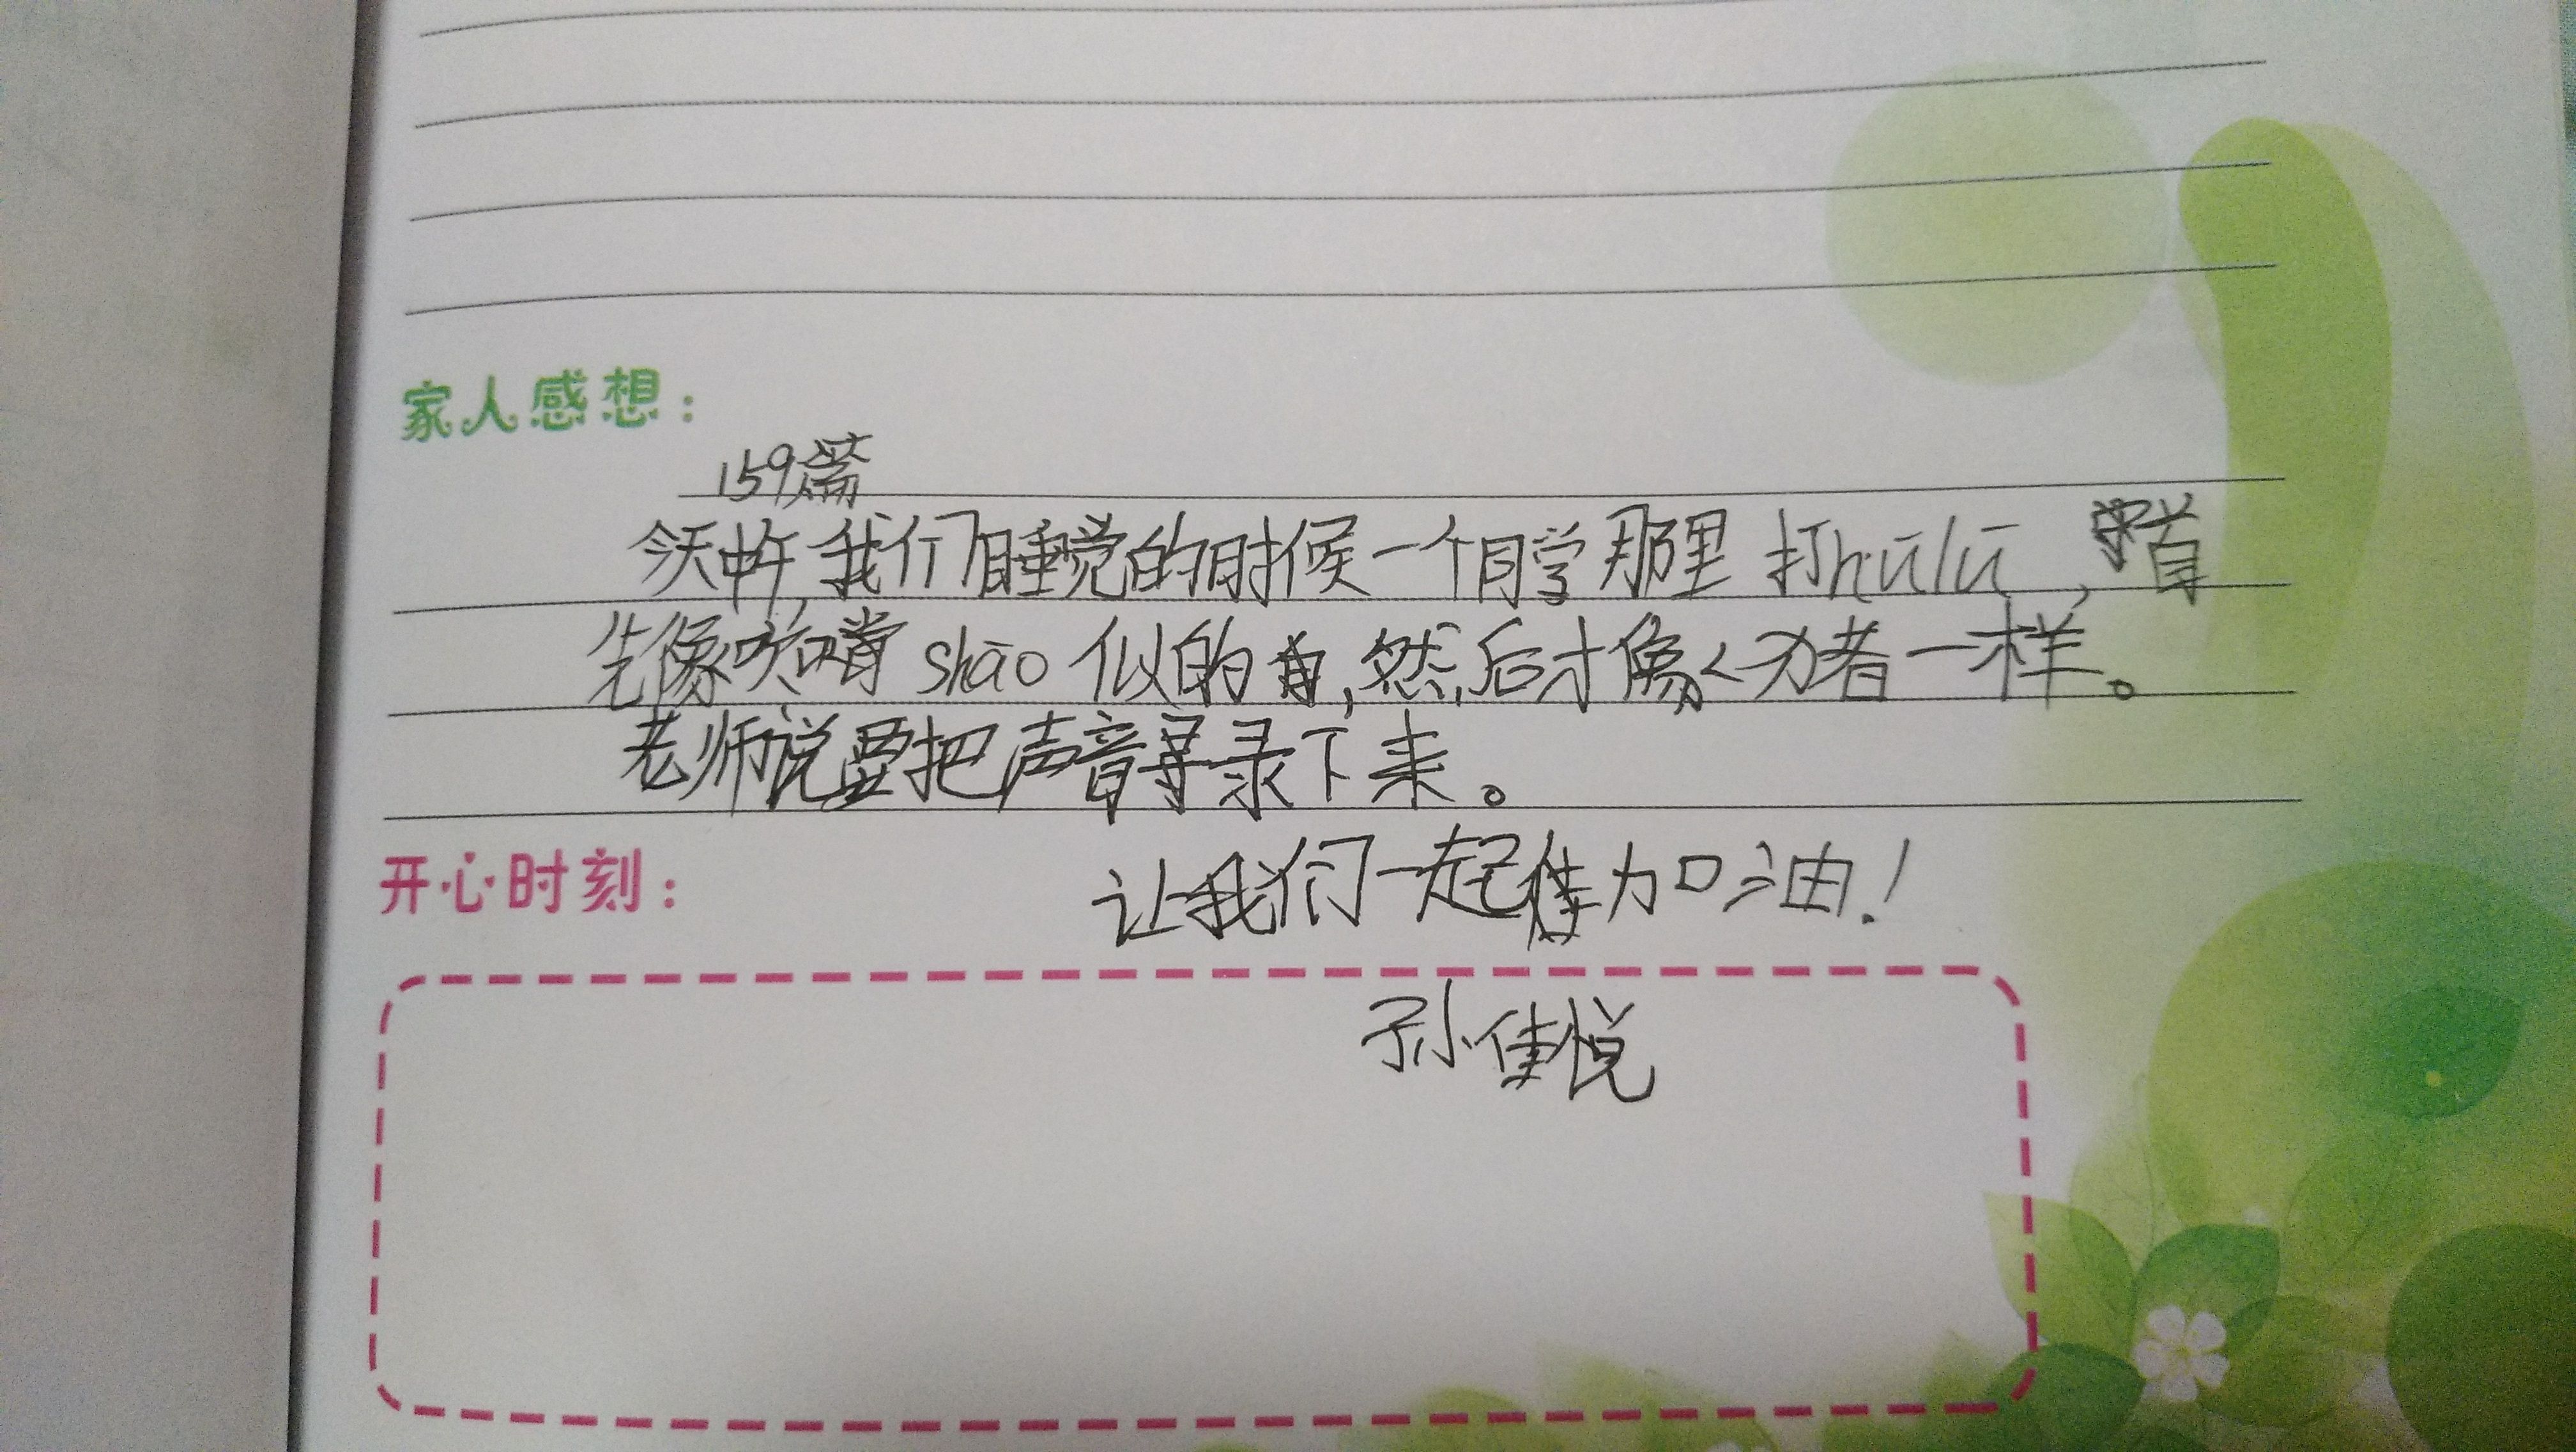 家人感想：
159篇
今天中午,我们睡觉的时候一个同学那里打hūlū,首
先像吹嘴shào似的,然后才像一样。
老师说要把声音录下来。
开心时刻：
让我们一起加油！
孙佳悦